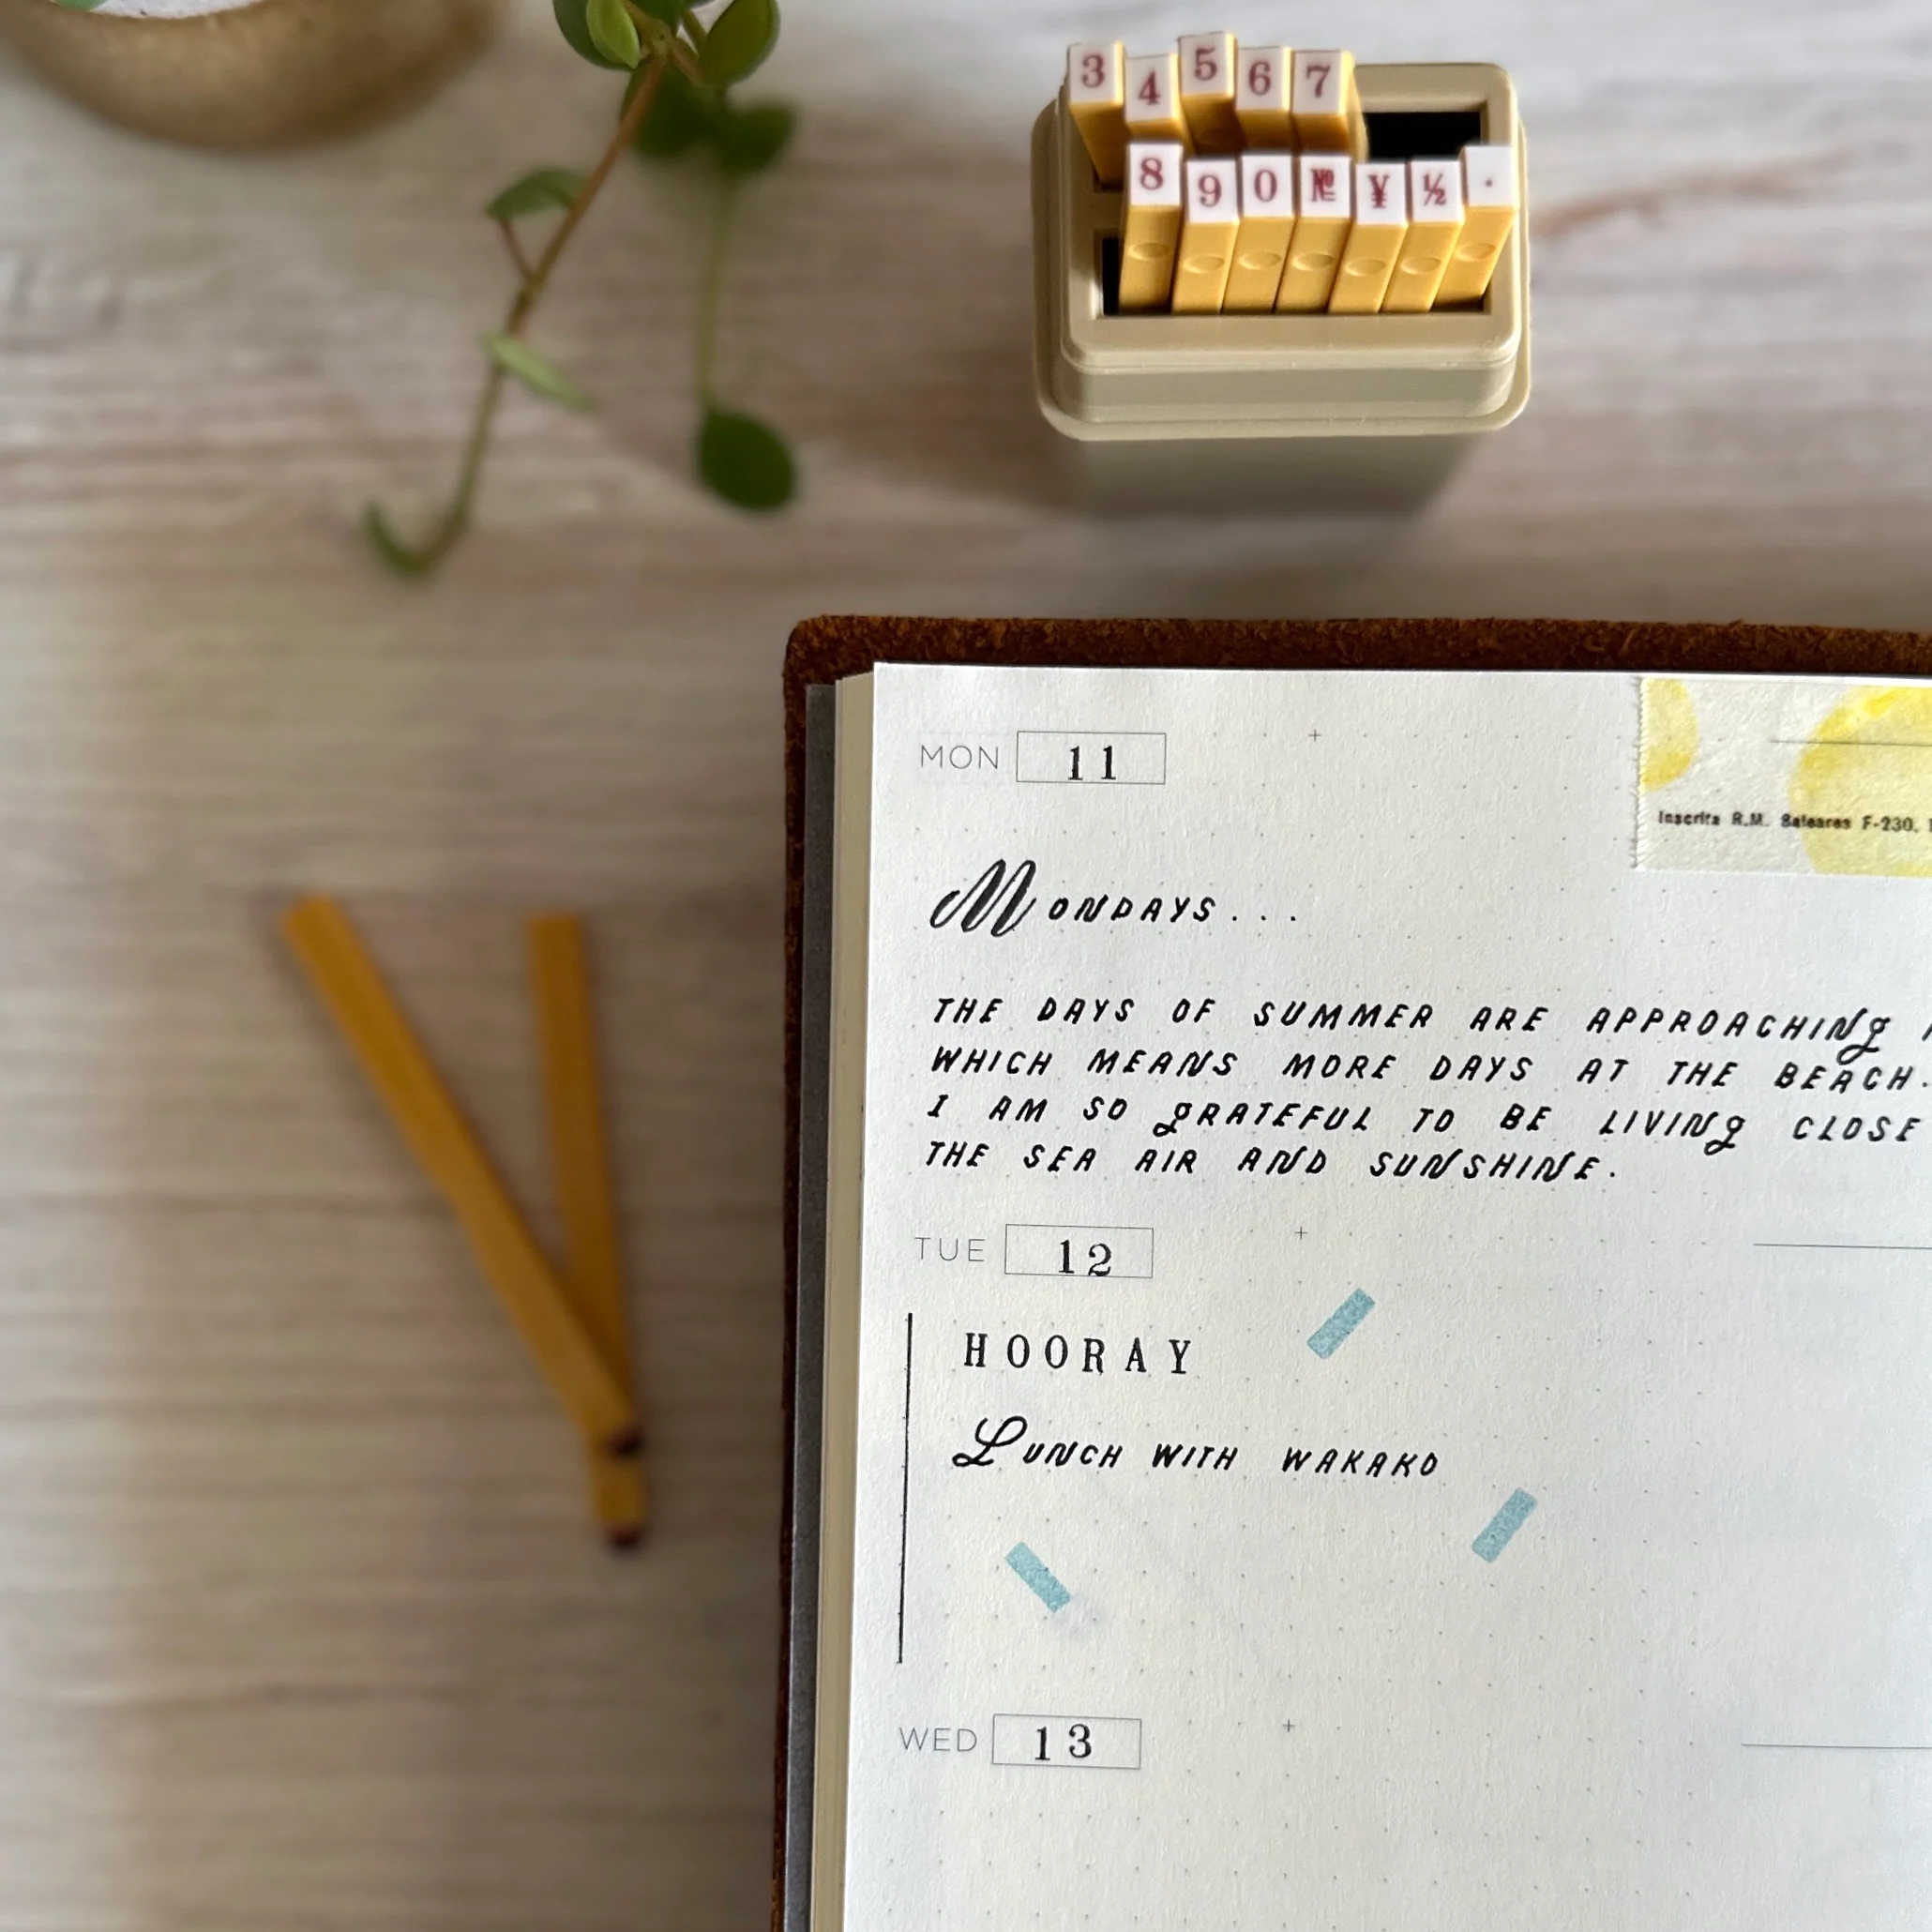 3 4 5 6 7
8 9 0 № ¥ ½ ·
MON 11
Inscrita R.M. Baleares F-230,
MONDAYS...
THE DAYS OF SUMMER ARE APPROACHING
WHICH MEANS MORE DAYS AT THE BEACH.
I AM SO GRATEFUL TO BE LIVING CLOSE
THE SEA AIR AND SUNSHINE.
TUE 12
HOORAY
LUNCH WITH WAKAKO
WED 13